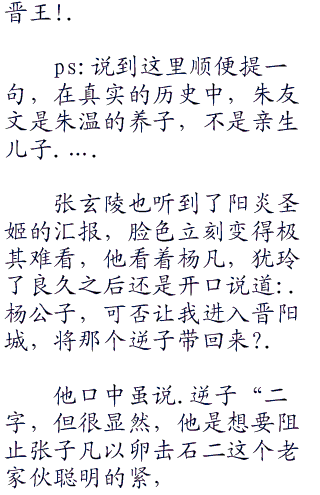 晋王!.
ps:说到这里顺便提一
句，在真实的历史中，朱友
文是朱温的养子，不是亲生
儿子.….
张玄陵也听到了阳炎圣
姬的汇报，脸色立刻变得极
其难看，他看着杨凡，犹玲
了良久之后还是开口说道:.
杨公子，可否让我进入晋阳
城，将那个逆子带回来?.
他口中虽说.逆子“二
字，但很显然，他是想要阻
止张子凡以卵击石二这个老
家伙聪明的紧，